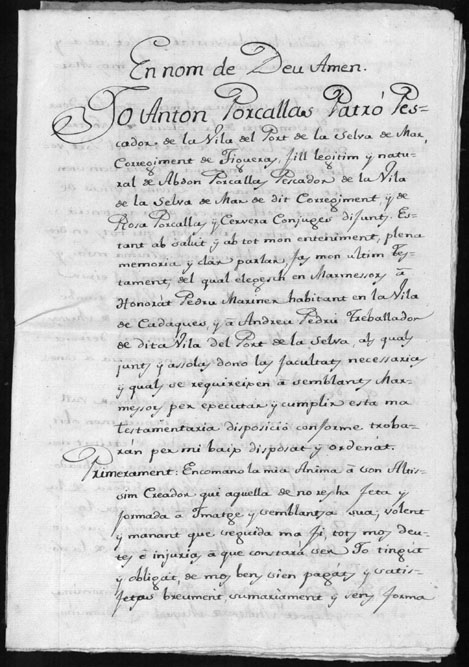 En nom de Deu Amen.
Jo Anton Porcallas Patró Pes-
cador, de la Vila del Port de la Selva de Mar,
Corregiment de Figueras, fill legitim y natu-
ral de Abdon Porcallas Pescador de la Vila
de la Selva de Mar de dit Corregiment, y de
Rosa Porcallas, y Cervera Conjuges difunts. Es-
tant ab salut y ab tot mon enteniment, plena
memoria y clar parlar, fas mon ultim Tes-
tament, del qual elegesch en Marmessors á
Honorat Pedru Mariner habitant en la Vila
de Cadaques, y á Andreu Pedrú Treballador
de dita Vila del Port de la Selva, als quals
junts y assolas dono las facultats necessarias
y quals se requireixen á semblants Mar-
messors per executar y cumplir esta ma
testamentaria disposició conforme troba-
rán per mi baix disposat y ordenat.
Primerament: Encomano la mia Anima á son Altis-
sim Creador qui aquella de no res ha feta y
formada á Imatge y semblansa sua, volent
y manant que seguida ma fi, tots mos deu-
tes é injurias á que constará ser Jo tingut
y obligat, de mos bens sien pagats y satis-
fetas breument sumariament y sens forma